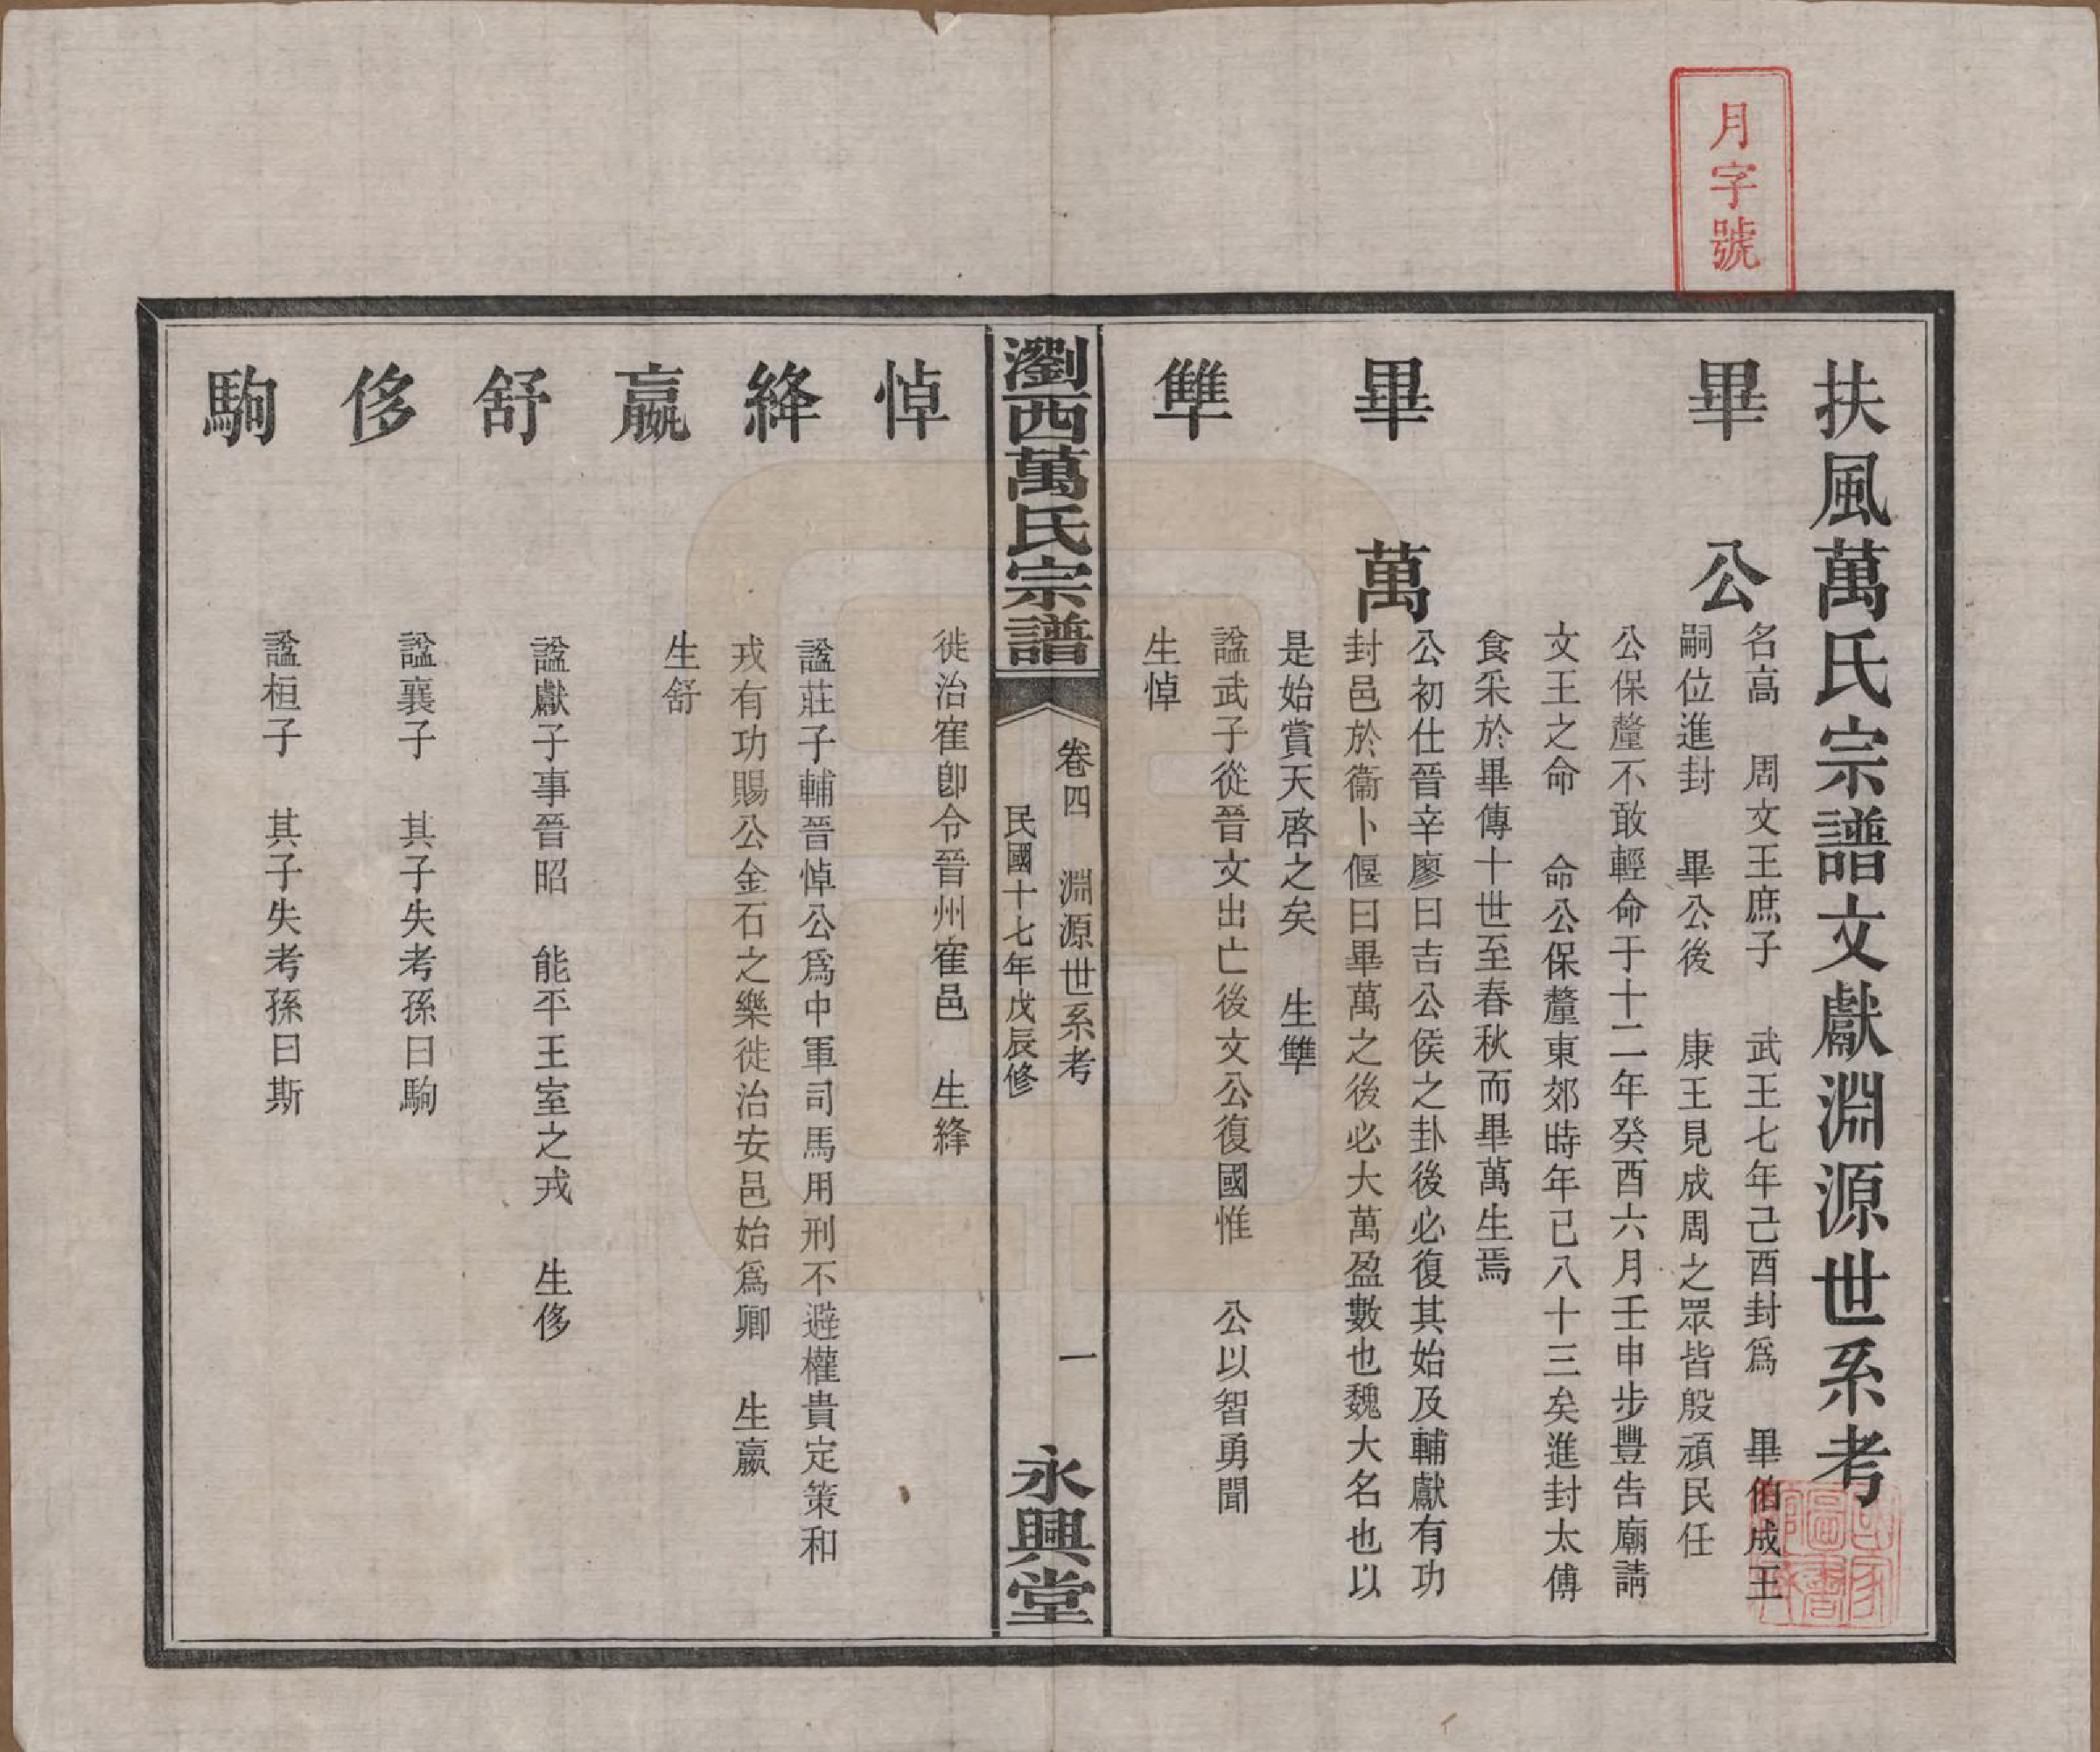 月字號
扶風萬氏宗譜文獻淵源世系考
畢公
名高　周文王庶子　武王七年己酉封爲　畢伯成王
嗣位進封　畢公後　康王見成周之眾皆殷頑民任
公保釐不敢輕命于十二年癸酉六月壬申步豐告廟請
文王之命　命公保釐東郊時年已八十三矣進封太傅
食采於畢傳十世至春秋而畢萬生焉
畢萬
公初仕晉辛廖曰吉公侯之卦後必復其始及輔獻有功
封邑於衞卜偃曰畢萬之後必大萬盈數也魏大名也以
是始賞天啓之矣　生雔
雔
諡武子從晉文出亡後文公復國惟　公以智勇聞
生悼
瀏西萬氏宗譜
卷四　淵源世系考　一
民國十七年戊辰修
永興堂
悼
徙治寉卽令晉州寉邑　生絳
絳
諡莊子輔晉悼公爲中軍司馬用刑不避權貴定策和
戎有功賜公金石之樂徙治安邑始爲卿　生嬴
嬴
生舒
舒
諡獻子事晉昭　能平王室之戎　生侈
侈
諡襄子　其子失考孫曰駒
駒
諡桓子　其子失考孫曰斯